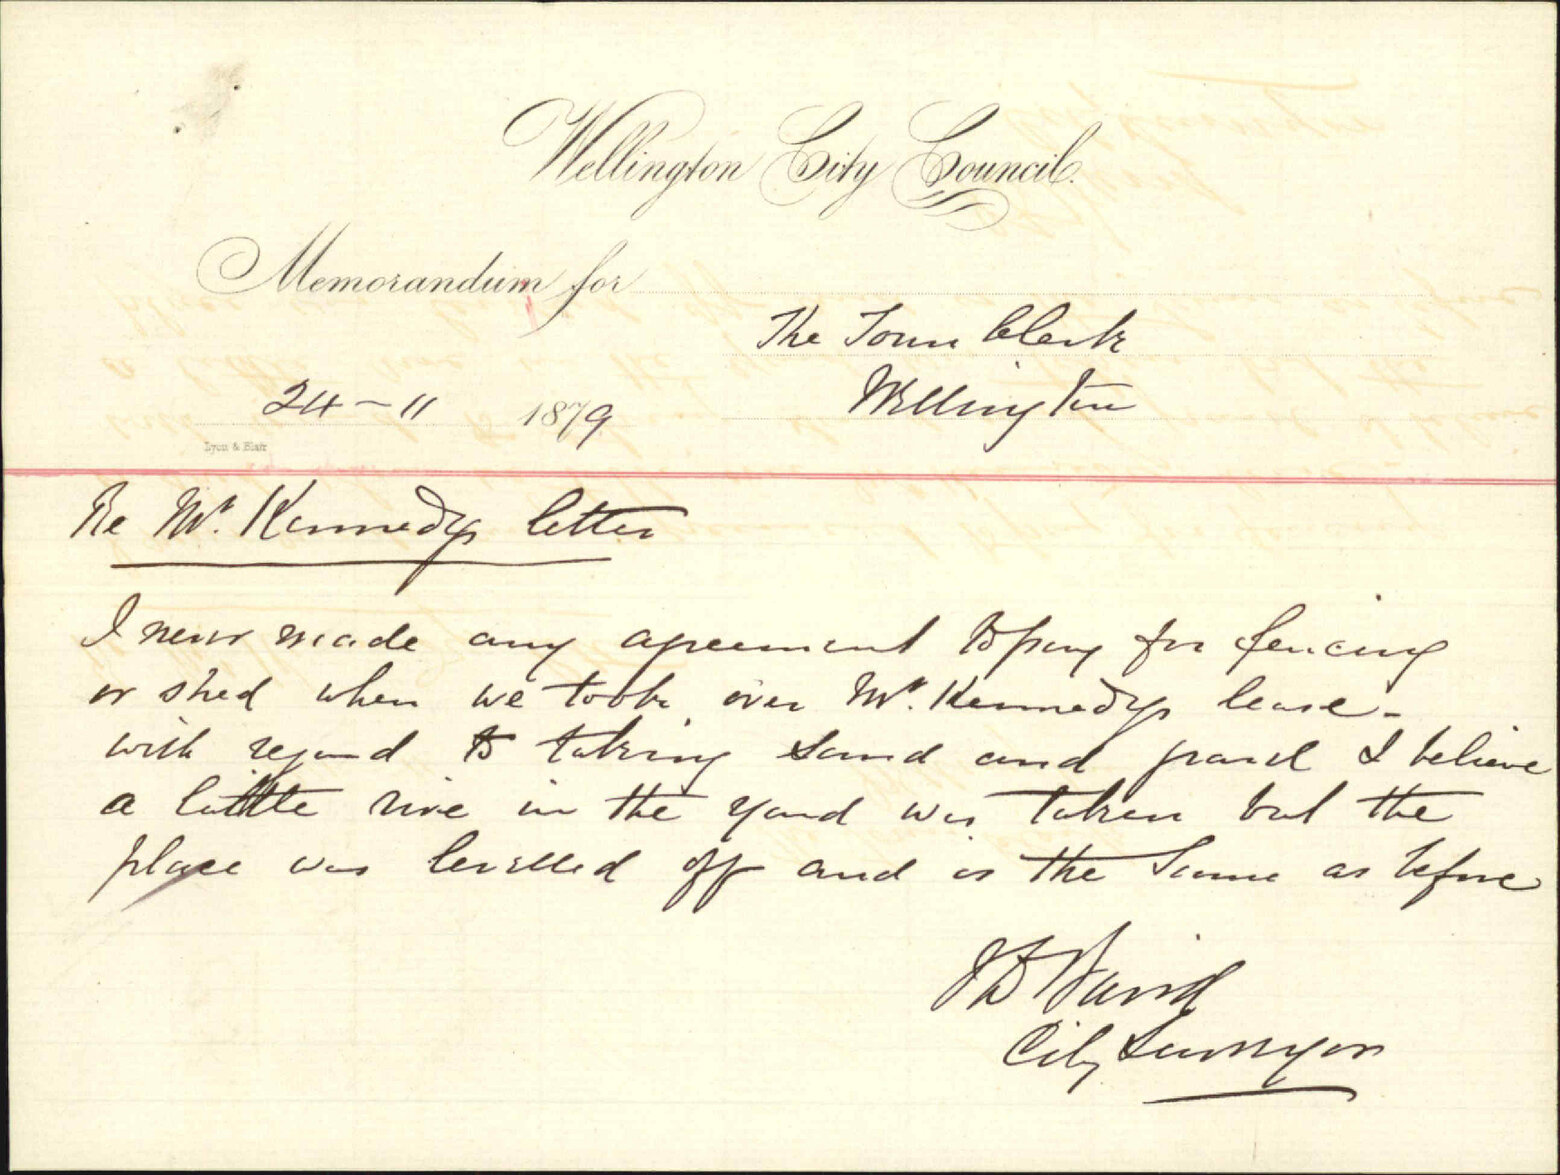 Wellington City Council.
Memorandum for
The Town Clerk
Wellington
24-11 1879
Lyon & Blair
Re Mr. Kennedys letter
I never made any agreement to pay for fencing
or shed when we took over Mr. Kennedys lease -
with regard to taking sand and gravel I believe
a little rise in the yard was taken but the
place was levelled off and is the same as before
J D Baird
City Surveyor